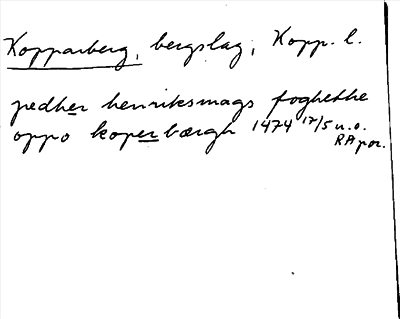 Kopparberg, bergslag, Kopp. l.
pedher henriksmags foghethe
oppo koperbærgh 1474 17/5 u.o.
RA por.